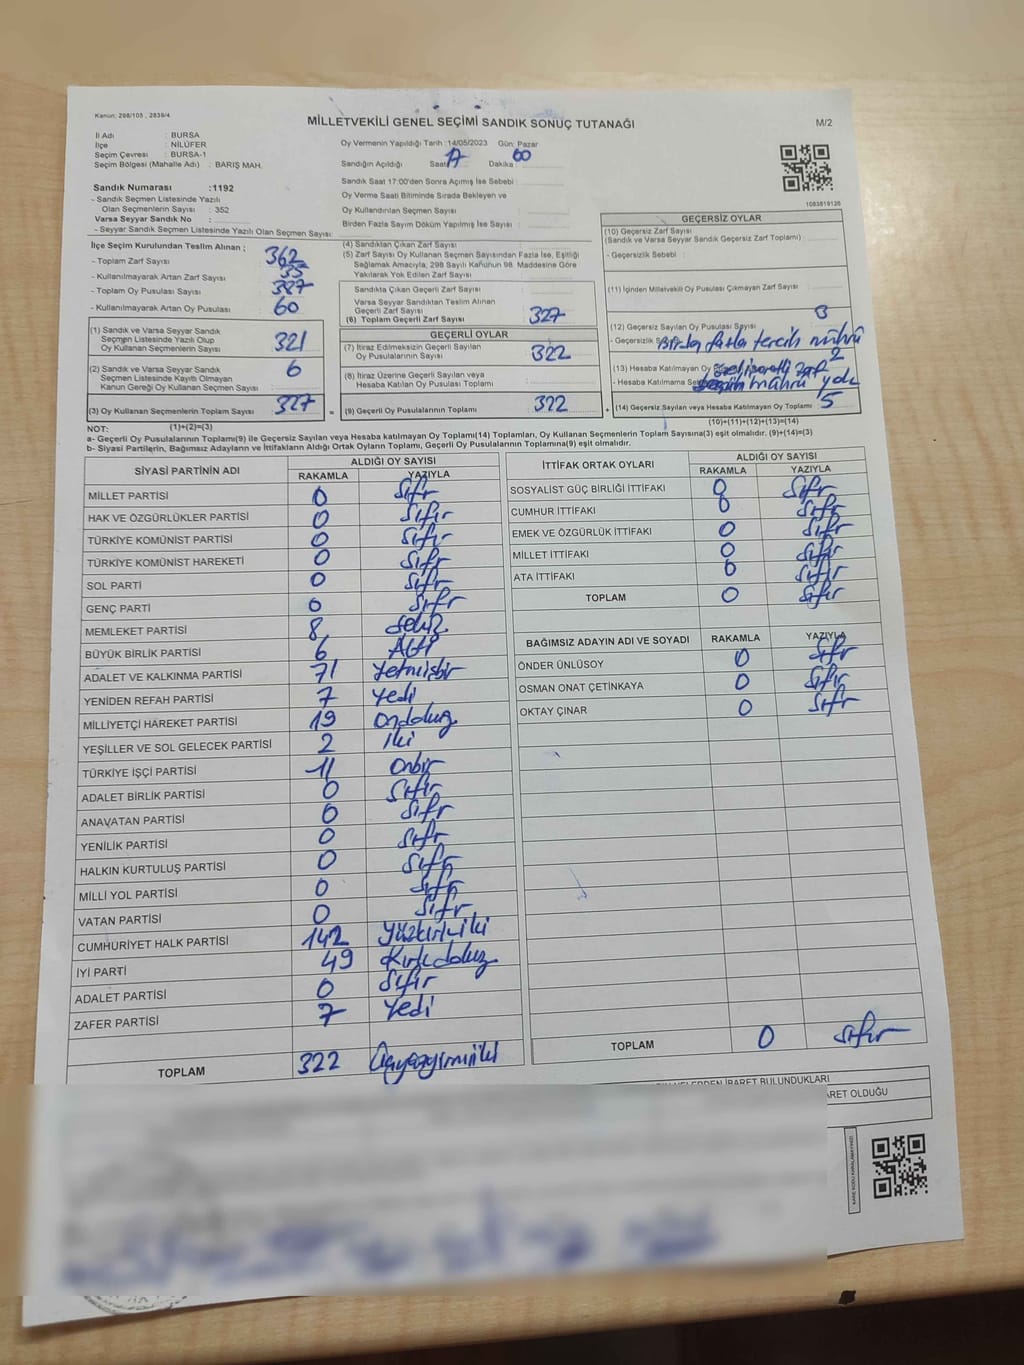 Kanun: 298/105 , 2839/4
MİLLETVEKİLİ GENEL SEÇİMİ SANDIK SONUÇ TUTANAĞI
M/2
İl Adı : BURSA
İlçe : NİLÜFER
Seçim Çevresi : BURSA-1
Seçim Bölgesi (Mahalle Adı) : BARIŞ MAH.
Sandık Numarası :1192
- Sandık Seçmen Listesinde Yazılı
Olan Seçmenlerin Sayısı : 352
Varsa Seyyar Sandık No :
- Seyyar Sandık Seçmen Listesinde Yazılı Olan Seçmen Sayısı:
Oy Vermenin Yapıldığı Tarih :14/05/2023 Gün: Pazar
Sandığın Açıldığı Saat: 17 Dakika: 00
Sandık Saat 17:00'den Sonra Açımış İse Sebebi :
Oy Verme Saati Bitiminde Sırada Bekleyen ve
Oy Kullandırılan Seçmen Sayısı :
Birden Fazla Sayım Döküm Yapılmış İse Sayısı :
1083819126
İlçe Seçim Kurulundan Teslim Alınan ;
- Toplam Zarf Sayısı : 362
- Kullanılmayarak Artan Zarf Sayısı : 35
- Toplam Oy Pusulası Sayısı : 387
- Kullanılmayarak Artan Oy Pusulası : 60
(1) Sandık ve Varsa Seyyar Sandık
Seçmen Listesinde Yazılı Olup
Oy Kullanan Seçmenlerin Sayısı : 321
(2) Sandık ve Varsa Seyyar Sandık
Seçmen Listesinde Kayıtlı Olmayan
Kanun Gereği Oy Kullanan Seçmen Sayısı : 6
(3) Oy Kullanan Seçmenlerin Toplam Sayısı : 327
(1)+(2)=(3)
(4) Sandıktan Çıkan Zarf Sayısı :
(5) Zarf Sayısı Oy Kullanan Seçmen Sayısından Fazla İse, Eşitliği
Sağlamak Amacıyla, 298 Sayılı Kanunun 98. Maddesine Göre
Yakılarak Yok Edilen Zarf Sayısı :
Sandıkta Çıkan Geçerli Zarf Sayısı :
Varsa Seyyar Sandıktan Teslim Alınan
Geçerli Zarf Sayısı :
(6) Toplam Geçerli Zarf Sayısı : 327
GEÇERLİ OYLAR
(7) İtiraz Edilmeksizin Geçerli Sayılan
Oy Pusulalarının Sayısı : 322
(8) İtiraz Üzerine Geçerli Sayılan veya
Hesaba Katılan Oy Pusulası Toplamı :
= (9) Geçerli Oy Pusulalarının Toplamı : 322
GEÇERSİZ OYLAR
(10) Geçersiz Zarf Sayısı
(Sandık ve Varsa Seyyar Sandık Geçersiz Zarf Toplamı) :
- Geçersizlik Sebebi :
(11) İçinden Milletvekili Oy Pusulası Çıkmayan Zarf Sayısı :
(12) Geçersiz Sayılan Oy Pusulası Sayısı : 3
- Geçersizlik fazla tercih mührü
(13) Hesaba Katılmayan Oy 2
- Hesaba Katılmama mührü yok
+ (14) Geçersiz Sayılan veya Hesaba Katılmayan Oy Toplamı : 5
(10)+(11)+(12)+(13)=(14)
NOT:
a- Geçerli Oy Pusulalarının Toplamı(9) ile Geçersiz Sayılan veya Hesaba katılmayan Oy Toplamı(14) Toplamları, Oy Kullanan Seçmenlerin Toplam Sayısına(3) eşit olmalıdır. (9)+(14)=(3)
b- Siyasi Partilerin, Bağımsız Adayların ve İttifakların Aldığı Ortak Oyların Toplamı, Geçerli Oy Pusulalarının Toplamına(9) eşit olmalıdır.
SİYASİ PARTİNİN ADI ALDIĞI OY SAYISI
RAKAMLA YAZIYLA
MİLLET PARTİSİ 0 Sıfır
HAK VE ÖZGÜRLÜKLER PARTİSİ 0 Sıfır
TÜRKİYE KOMÜNİST PARTİSİ 0 Sıfır
TÜRKİYE KOMÜNİST HAREKETİ 0 Sıfır
SOL PARTİ 0 Sıfır
GENÇ PARTİ 0 Sıfır
MEMLEKET PARTİSİ 8 Sekiz
BÜYÜK BİRLİK PARTİSİ 6 Altı
ADALET VE KALKINMA PARTİSİ 71 Yetmişbir
YENİDEN REFAH PARTİSİ 7 Yedi
MİLLİYETÇİ HAREKET PARTİSİ 19 Ondokuz
YEŞİLLER VE SOL GELECEK PARTİSİ 2 İki
TÜRKİYE İŞÇİ PARTİSİ 11 Onbir
ADALET BİRLİK PARTİSİ 0 Sıfır
ANAVATAN PARTİSİ 0 Sıfır
YENİLİK PARTİSİ 0 Sıfır
HALKIN KURTULUŞ PARTİSİ 0 Sıfır
MİLLİ YOL PARTİSİ 0 Sıfır
VATAN PARTİSİ 0 Sıfır
CUMHURİYET HALK PARTİSİ 142 Yüzkırkiki
İYİ PARTİ 49 Kırkdokuz
ADALET PARTİSİ 0 Sıfır
ZAFER PARTİSİ 7 Yedi
TOPLAM 322 Üçyüzyirmiiki
İTTİFAK ORTAK OYLARI ALDIĞI OY SAYISI
RAKAMLA YAZIYLA
SOSYALİST GÜÇ BİRLİĞİ İTTİFAKI 0 Sıfır
CUMHUR İTTİFAKI 0 Sıfır
EMEK VE ÖZGÜRLÜK İTTİFAKI 0 Sıfır
MİLLET İTTİFAKI 0 Sıfır
ATA İTTİFAKI 0 Sıfır
TOPLAM 0 Sıfır
BAĞIMSIZ ADAYIN ADI VE SOYADI RAKAMLA YAZIYLA
ÖNDER ÜNLÜSOY 0 Sıfır
OSMAN ONAT ÇETİNKAYA 0 Sıfır
OKTAY ÇINAR 0 Sıfır
TOPLAM 0 Sıfır
İBARET BULUNDUKLARI
OLDUĞU